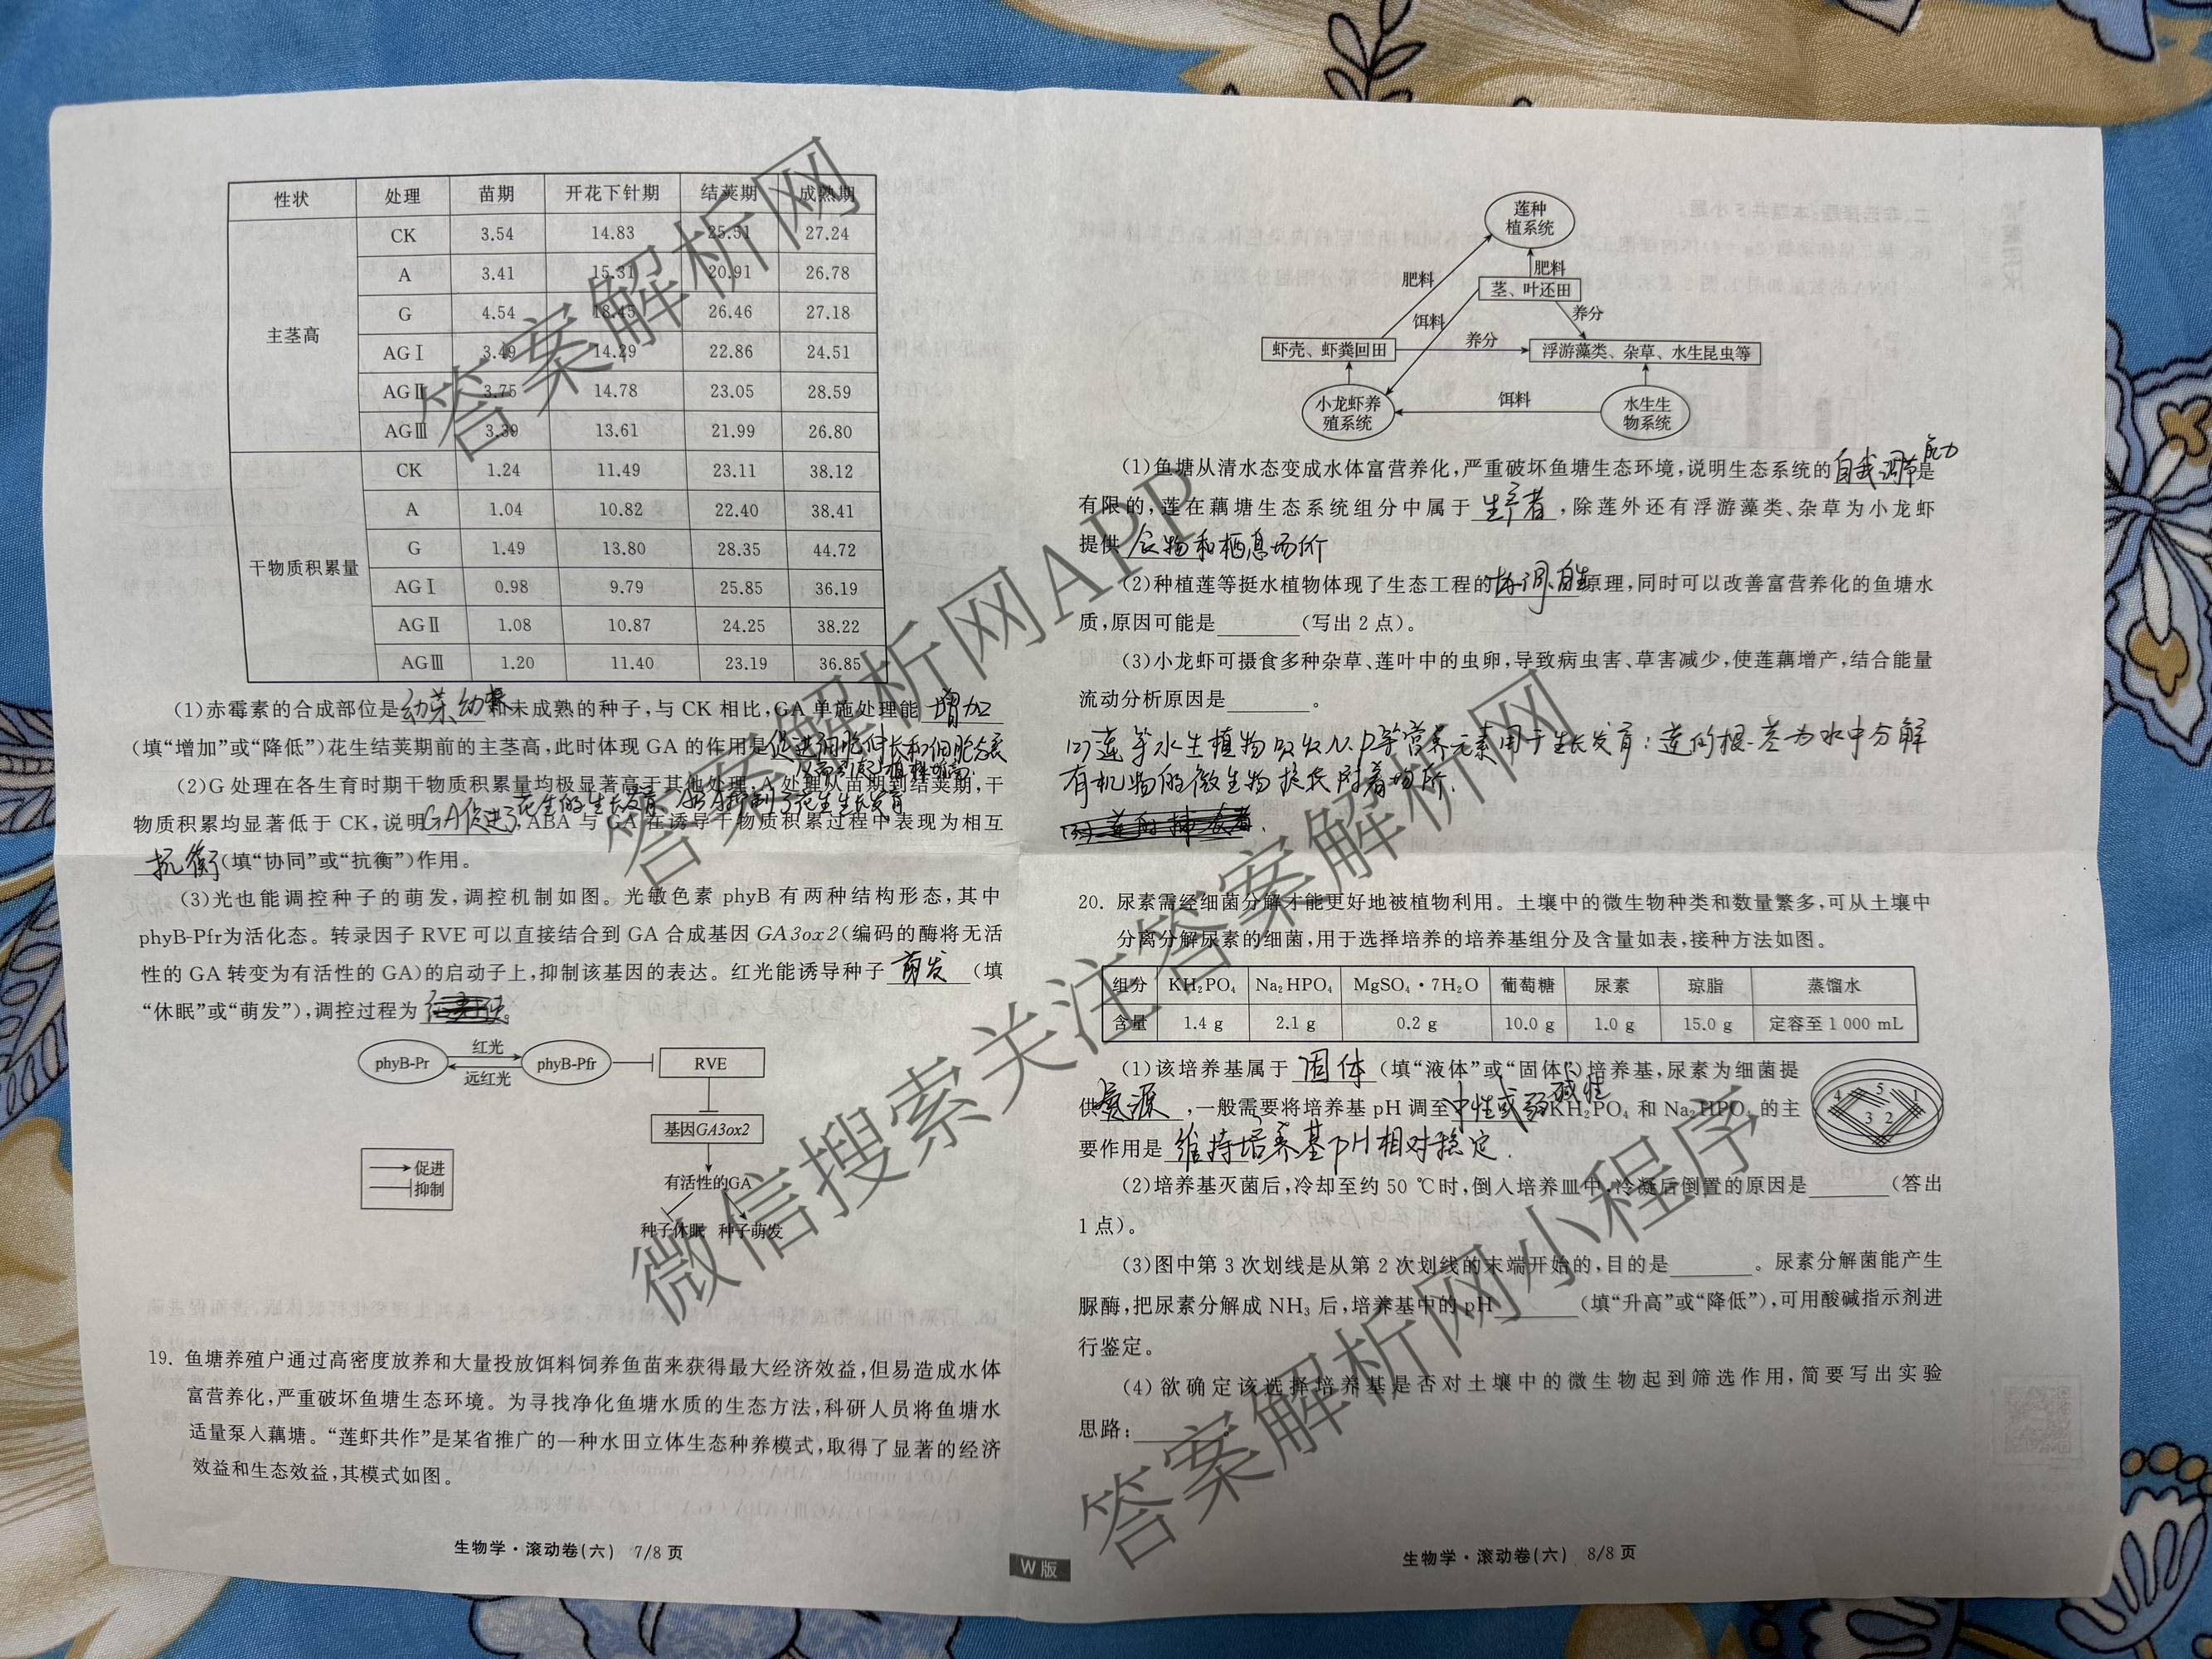 性状 处理 苗期 开花下针期 结荚期 成熟期
主茎高
CK 3.54 14.83 25.51 27.24
A 3.41 15.31 20.91 26.78
G 4.54 18.45 26.46 27.18
AGⅠ 3.49 14.29 22.86 24.51
AGⅡ 3.75 14.78 23.05 28.59
AGⅢ 3.39 13.61 21.99 26.80
干物质积累量
CK 1.24 11.49 23.11 38.12
A 1.04 10.82 22.40 38.41
G 1.49 13.80 28.35 44.72
AGⅠ 0.98 9.79 25.85 36.19
AGⅡ 1.08 10.87 24.25 38.22
AGⅢ 1.20 11.40 23.19 36.85
(1)赤霉素的合成部位是幼芽、幼根和未成熟的种子,与 CK 相比,GA 单施处理能 增加
(填“增加”或“降低”)花生结荚期前的主茎高,此时体现 GA 的作用是促进细胞伸长和细胞分裂
从而引起植株增高
(2)G 处理在各生育时期干物质积累量均极显著高于其他处理,A 处理从苗期到结荚期,干
物质积累均显著低于 CK,说明GA促进了花生的生长发育,ABA抑制了花生生长发育,ABA 与 GA 在诱导干物质积累过程中表现为相互
抗衡(填“协同”或“抗衡”)作用。
(3)光也能调控种子的萌发,调控机制如图。光敏色素 phyB 有两种结构形态,其中
phyB-Pfr为活化态。转录因子 RVE 可以直接结合到 GA 合成基因 GA3ox2(编码的酶将无活
性的 GA 转变为有活性的 GA)的启动子上,抑制该基因的表达。红光能诱导种子 萌发 (填
“休眠”或“萌发”),调控过程为 。
phyB-Pr 红光 远红光 phyB-Pfr RVE
基因GA3ox2
促进
抑制
有活性的GA
种子休眠 种子萌发
19. 鱼塘养殖户通过高密度放养和大量投放饵料饲养鱼苗来获得最大经济效益,但易造成水体
富营养化,严重破坏鱼塘生态环境。为寻找净化鱼塘水质的生态方法,科研人员将鱼塘水
适量泵入藕塘。“莲虾共作”是某省推广的一种水田立体生态种养模式,取得了显著的经济
效益和生态效益,其模式如图。
生物学·滚动卷(六) 7/8 页
W 版
莲种
植系统
肥料 肥料
茎、叶还田
饵料 养分
虾壳、虾粪回田 养分 浮游藻类、杂草、水生昆虫等
小龙虾养
殖系统
饵料
水生生
物系统
(1)鱼塘从清水态变成水体富营养化,严重破坏鱼塘生态环境,说明生态系统的自我调节能力是
有限的,莲在藕塘生态系统组分中属于 生产者 ,除莲外还有浮游藻类、杂草为小龙虾
提供 食物和栖息场所
(2)种植莲等挺水植物体现了生态工程的协调、自生原理,同时可以改善富营养化的鱼塘水
质,原因可能是______(写出 2 点)。
(3)小龙虾可摄食多种杂草、莲叶中的虫卵,导致病虫害、草害减少,使莲藕增产,结合能量
流动分析原因是______。
(2)莲等水生植物吸收N.P等营养元素用于生长发育;莲的根、茎为水中分解
有机物的微生物提供附着场所.
20. 尿素需经细菌分解才能更好地被植物利用。土壤中的微生物种类和数量繁多,可从土壤中
分离分解尿素的细菌,用于选择培养的培养基组分及含量如表,接种方法如图。
组分 KH₂PO₄ Na₂HPO₄ MgSO₄·7H₂O 葡萄糖 尿素 琼脂 蒸馏水
含量 1.4 g 2.1 g 0.2 g 10.0 g 1.0 g 15.0 g 定容至 1 000 mL
(1)该培养基属于 固体 (填“液体”或“固体”)培养基,尿素为细菌提
供氮源,一般需要将培养基 pH 调至中性或弱碱性KH₂PO₄ 和 Na₂HPO₄ 的主
要作用是 维持培养基pH相对稳定.
4 5 1 3 2
(2)培养基灭菌后,冷却至约 50 ℃时,倒入培养皿中,冷凝后倒置的原因是______(答出
1 点)。
(3)图中第 3 次划线是从第 2 次划线的末端开始的,目的是______。尿素分解菌能产生
脲酶,把尿素分解成 NH₃ 后,培养基中的 pH______(填“升高”或“降低”),可用酸碱指示剂进
行鉴定。
(4)欲确定该选择培养基是否对土壤中的微生物起到筛选作用,简要写出实验
思路:______。
生物学·滚动卷(六) 8/8 页
答案解析网
答案解析网APP
微信搜索关注答案解析网
答案解析网小程序